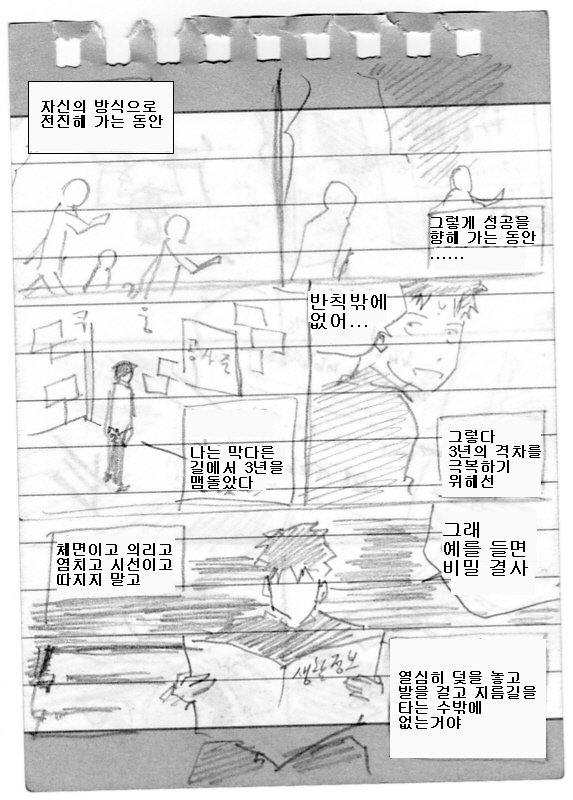 자신의 방식으로
전진해 가는 동안
그렇게 성공을
향해 가는 동안
......
반칙밖에
없어...
공사중
나는 막다른
길에서 3년을
맴돌았다
그렇다
3년의 격차를
극복하기
위해선
체면이고 의리고
염치고 시선이고
따지지 말고
그래
예를 들면
비밀 결사
생활정보
열심히 덫을 놓고
발을 걸고 지름길을
타는 수밖에
없는거야